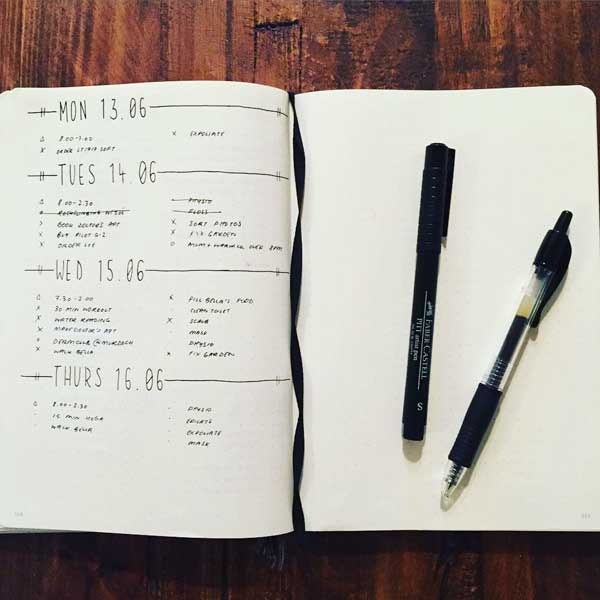 MON 13.06
△ 8.00-3.00
X ORDER LT1917 SOFT
X EXFOLIATE
TUES 14.06
△ 8.00-2.30
> BOOK DOCTOR'S APT
X BUY PILOT G-2
X ORDER
PHYSIO
FLOSS
X SORT PHOTOS
X FIX GARDEN
O MUM + OVER 8PM
WED 15.06
△ 7.30-2.00
X 30 MIN WORKOUT
X WATER READING
X MAKE DOCTOR'S APT
O @ MURDOCH
X WALK BELLA
X FILL BELLA'S FOOD
CLEAN TOILET
X SCRUB
· MASK
PHYSIO
X FIX GARDEN
THURS 16.06
△ 8.00-2.30
· 15 MIN YOGA
· WALK BELLA
· PHYSIO
· EXFOLIATE
· MASK
FABER-CASTELL
PITT artist pen
S